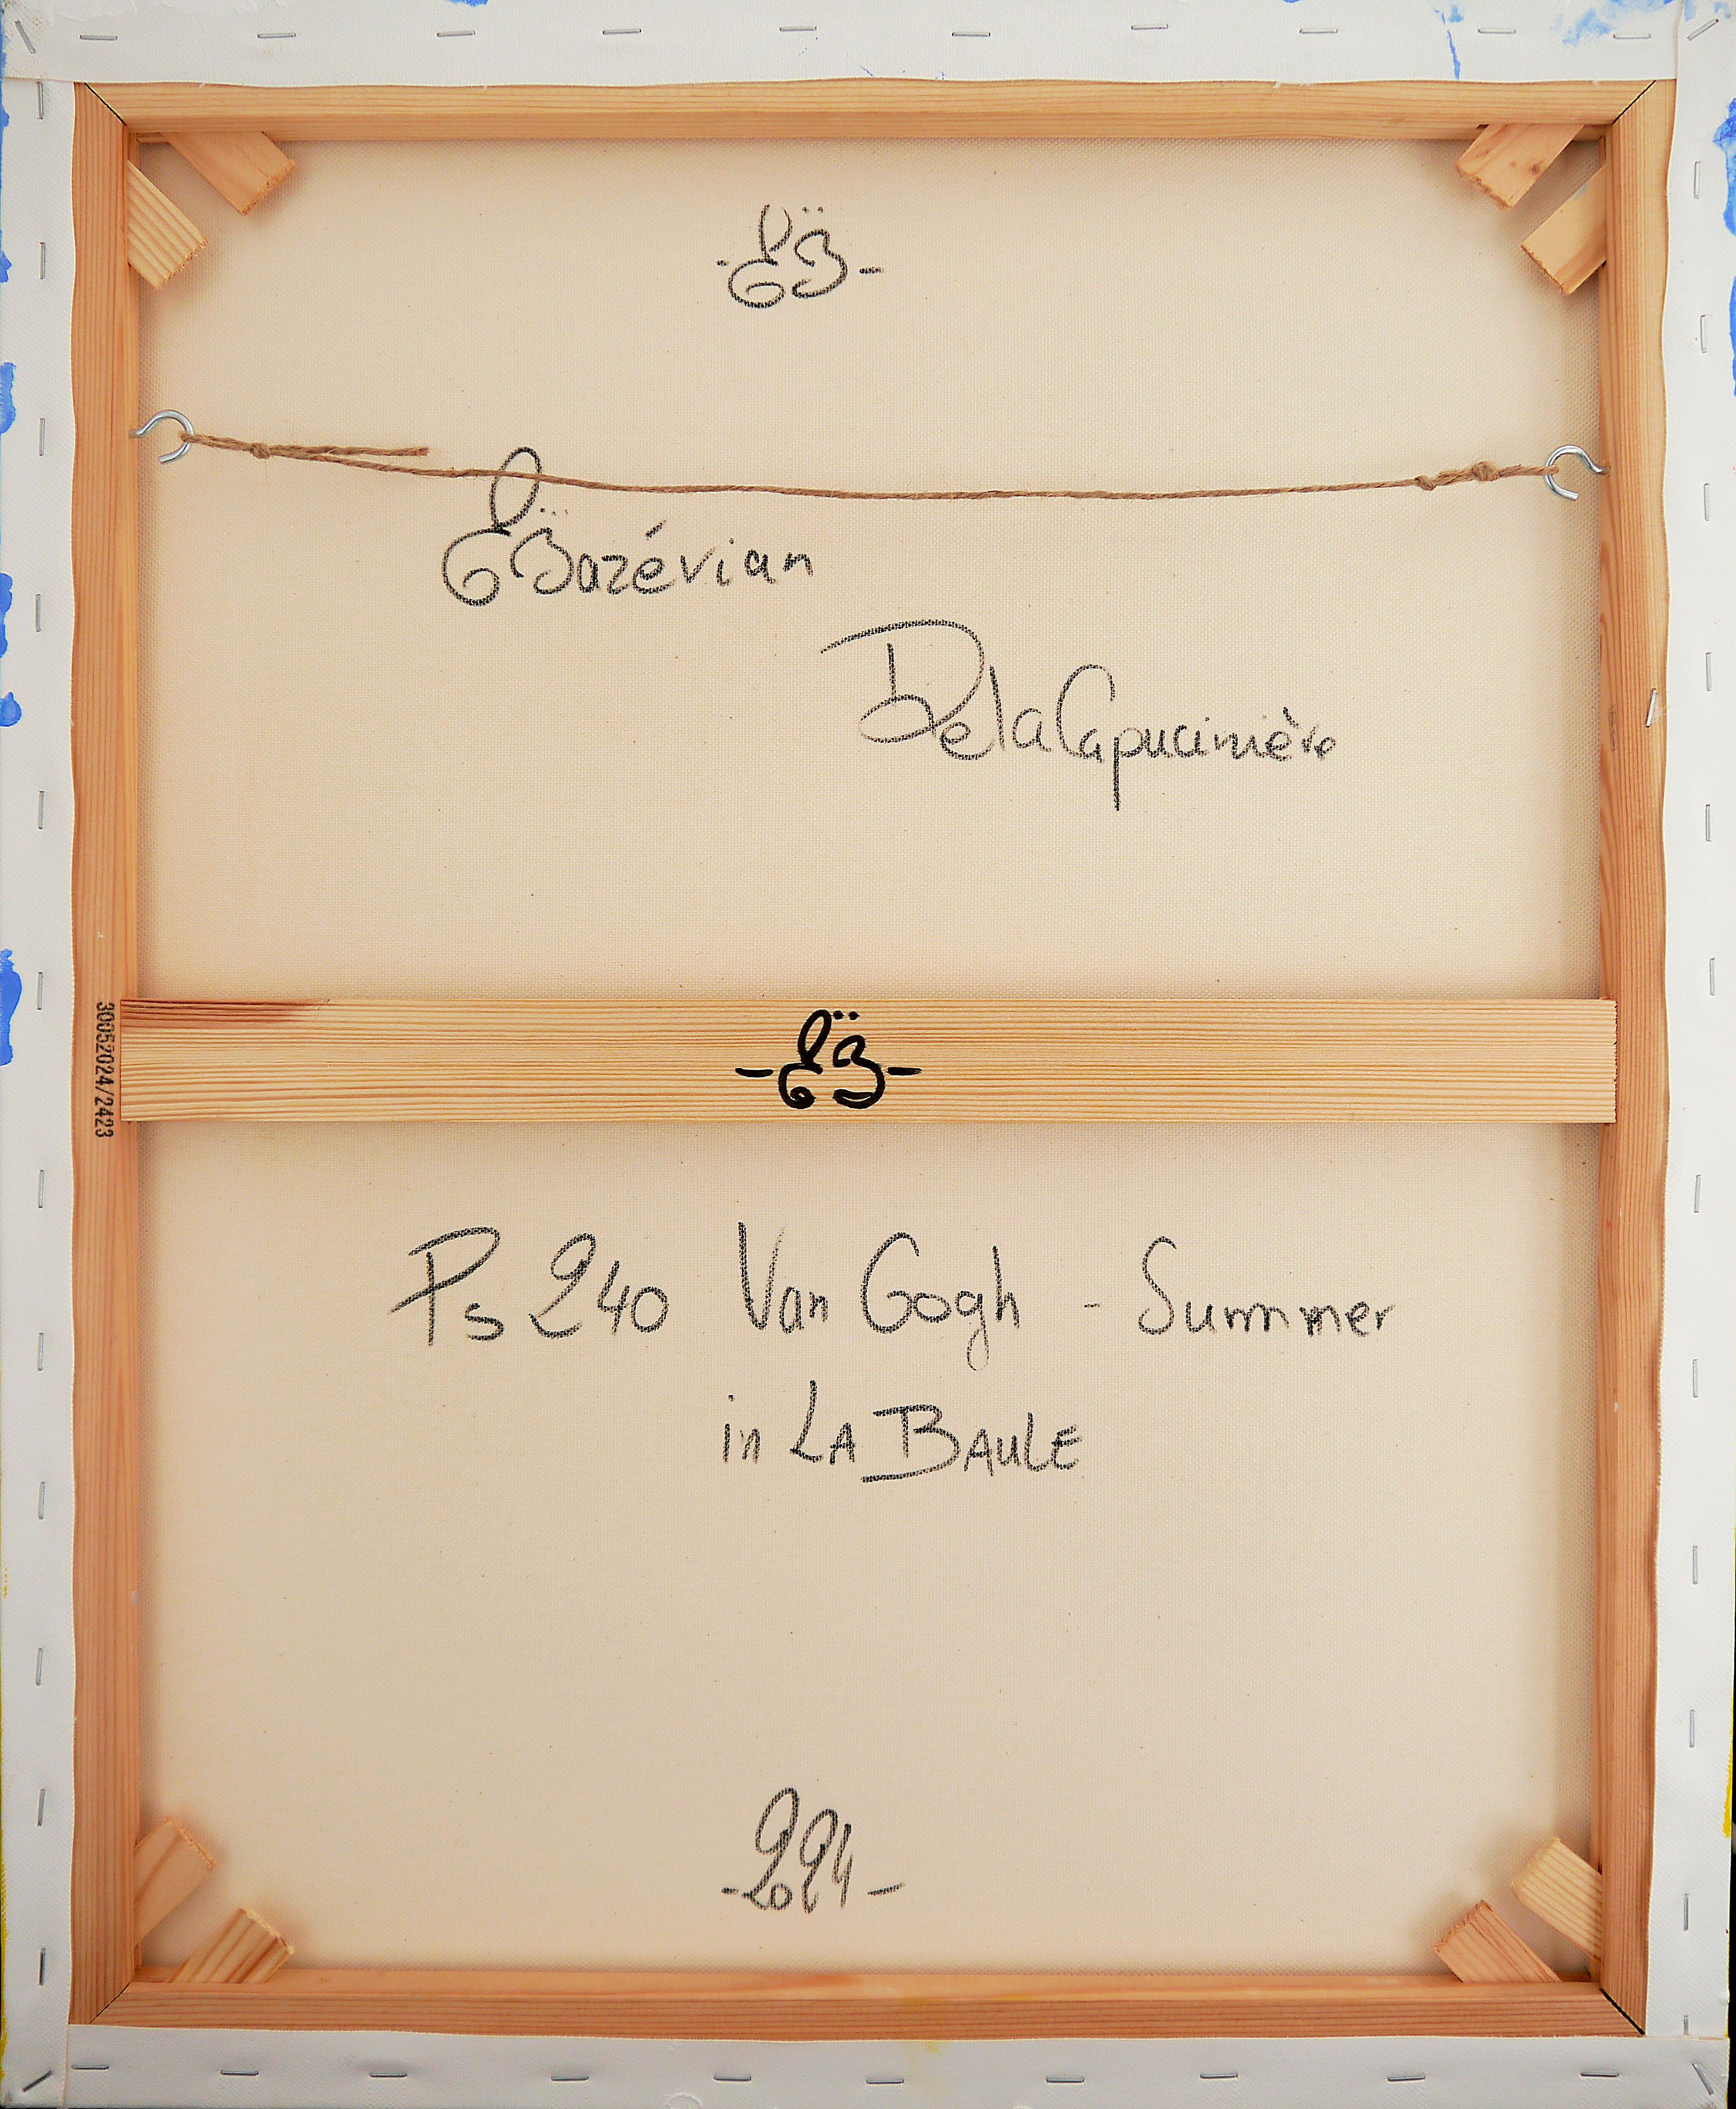 Bazévian
De la Capucinière
30052024/2423
Ps 240 Van Gogh - Summer
in LA BAULE
- 2024 -